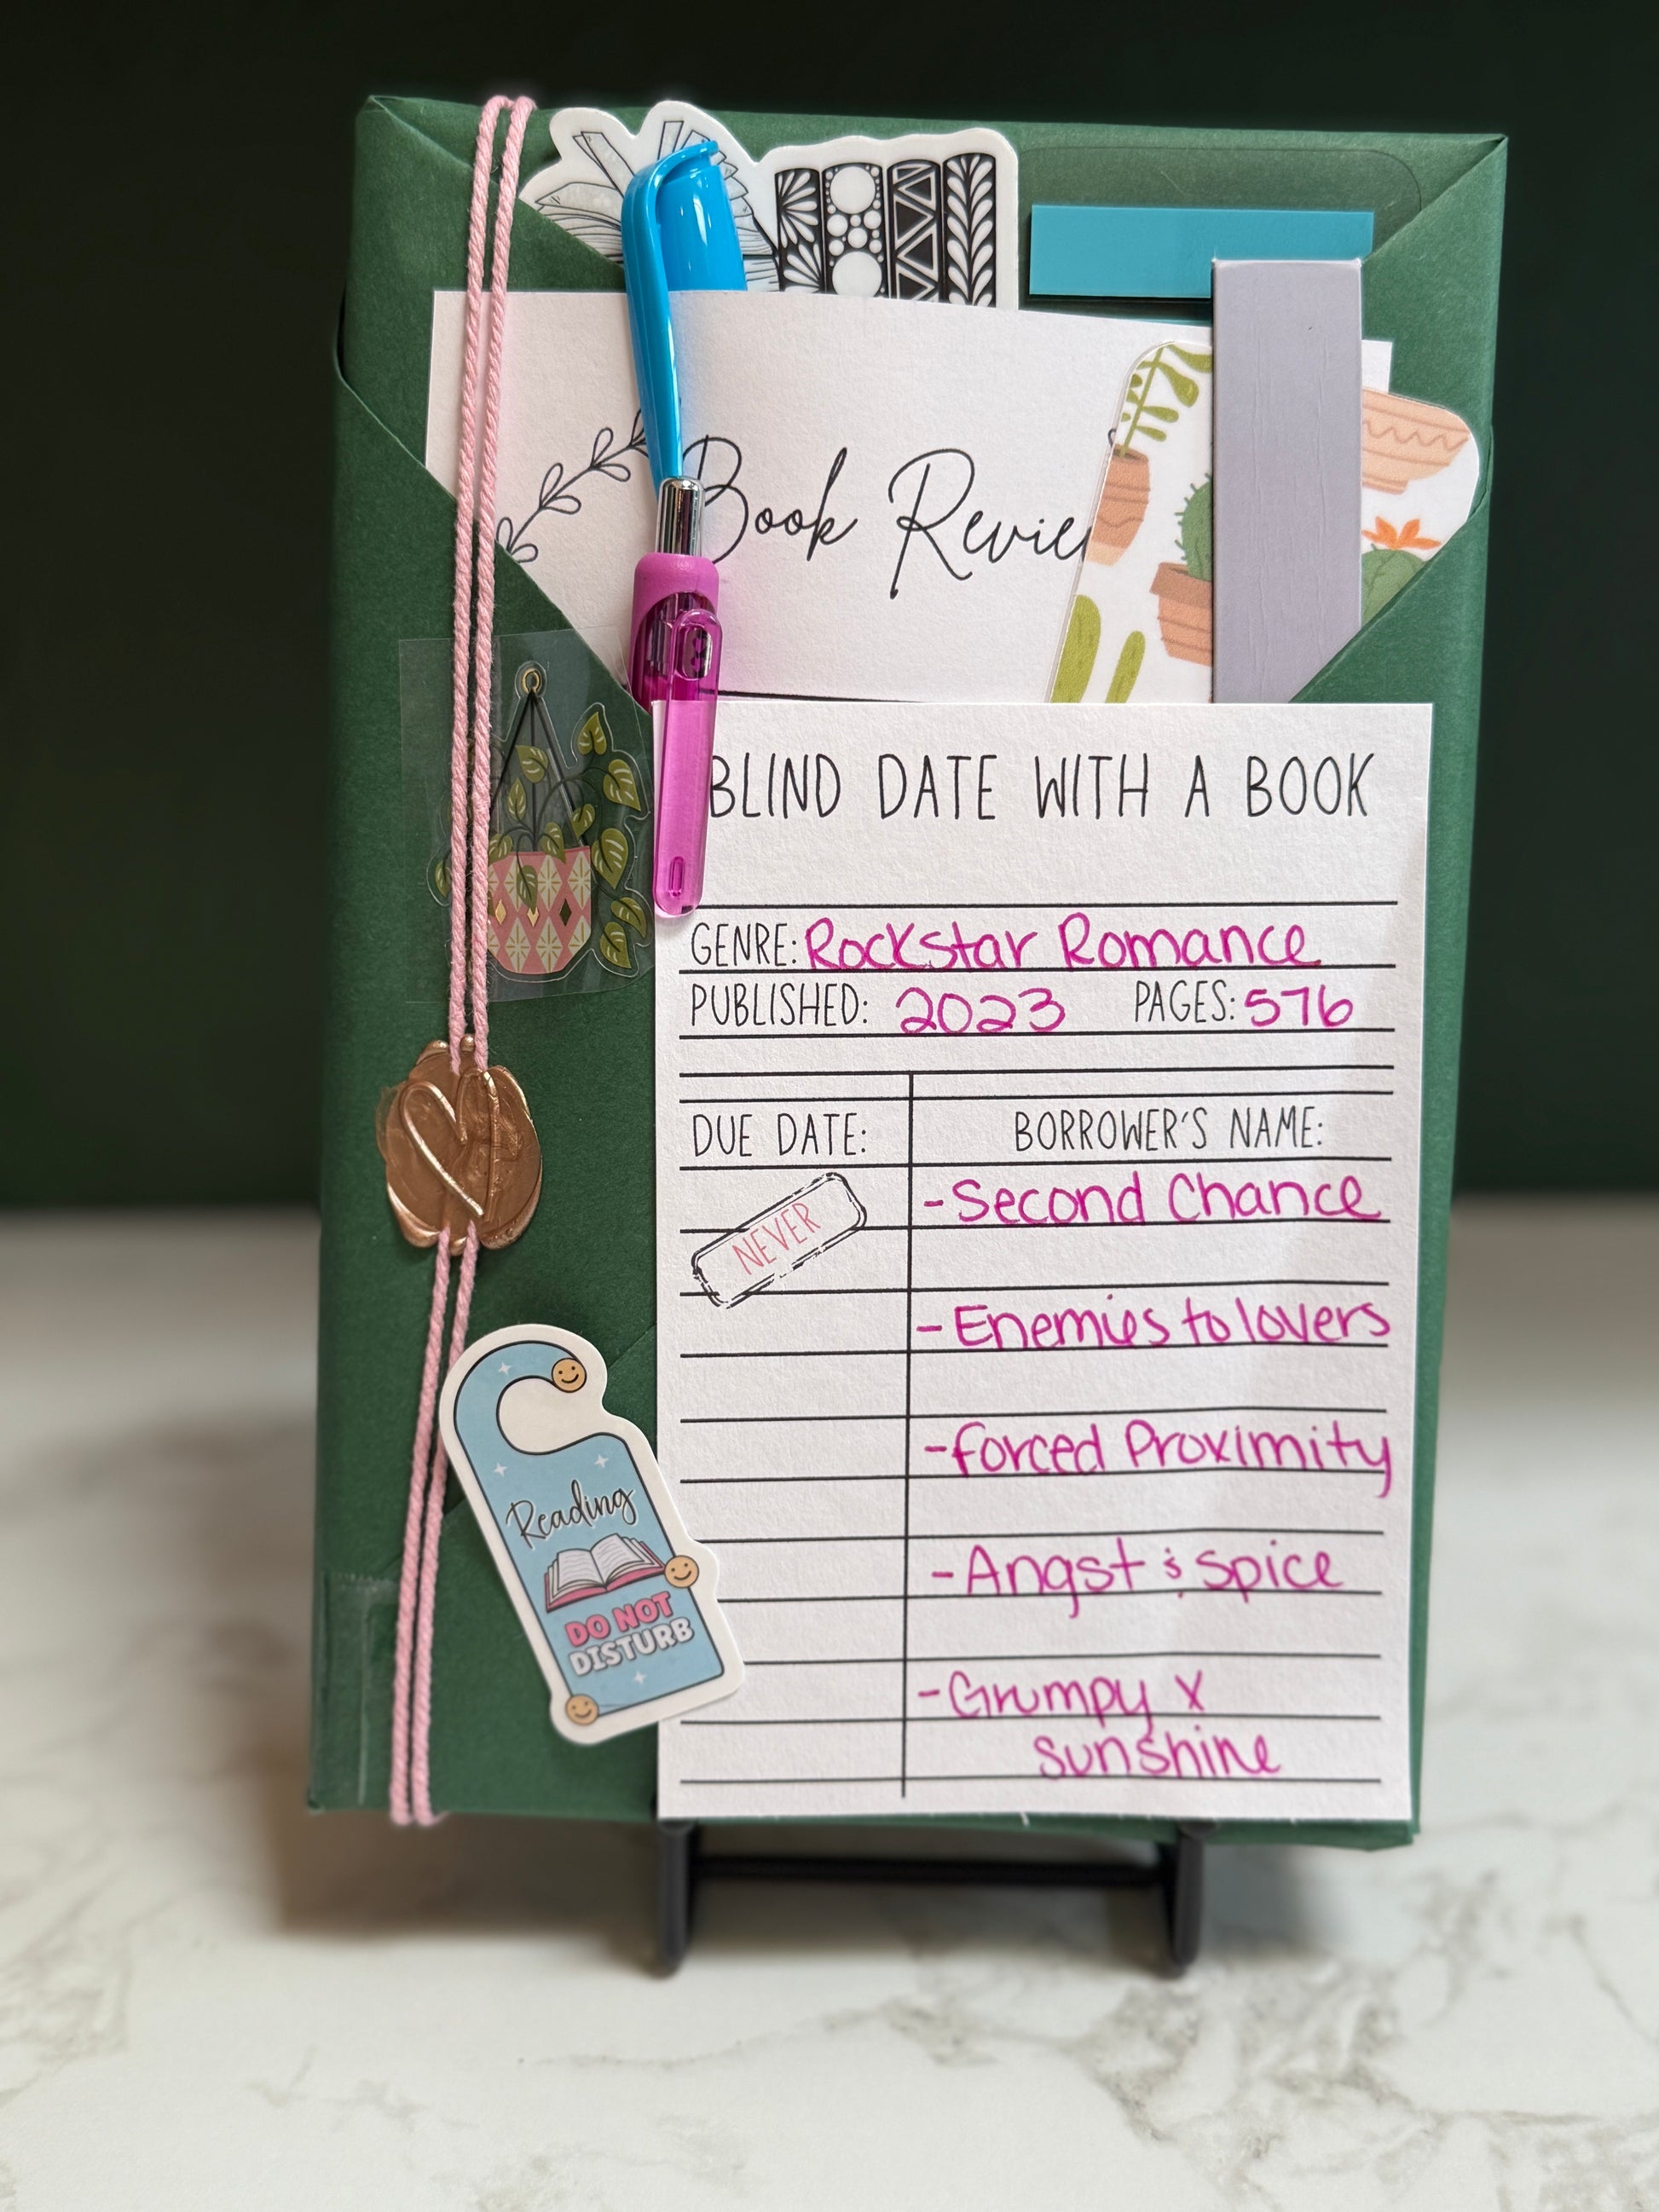 Book Revie
BLIND DATE WITH A BOOK
GENRE: Rockstar Romance
PUBLISHED: 2023 PAGES: 576
DUE DATE: BORROWER'S NAME:
NEVER
- Second Chance
- Enemies to lovers
- forced Proximity
- Angst & Spice
- Grumpy x
sunshine
Reading
DO NOT
DISTURB